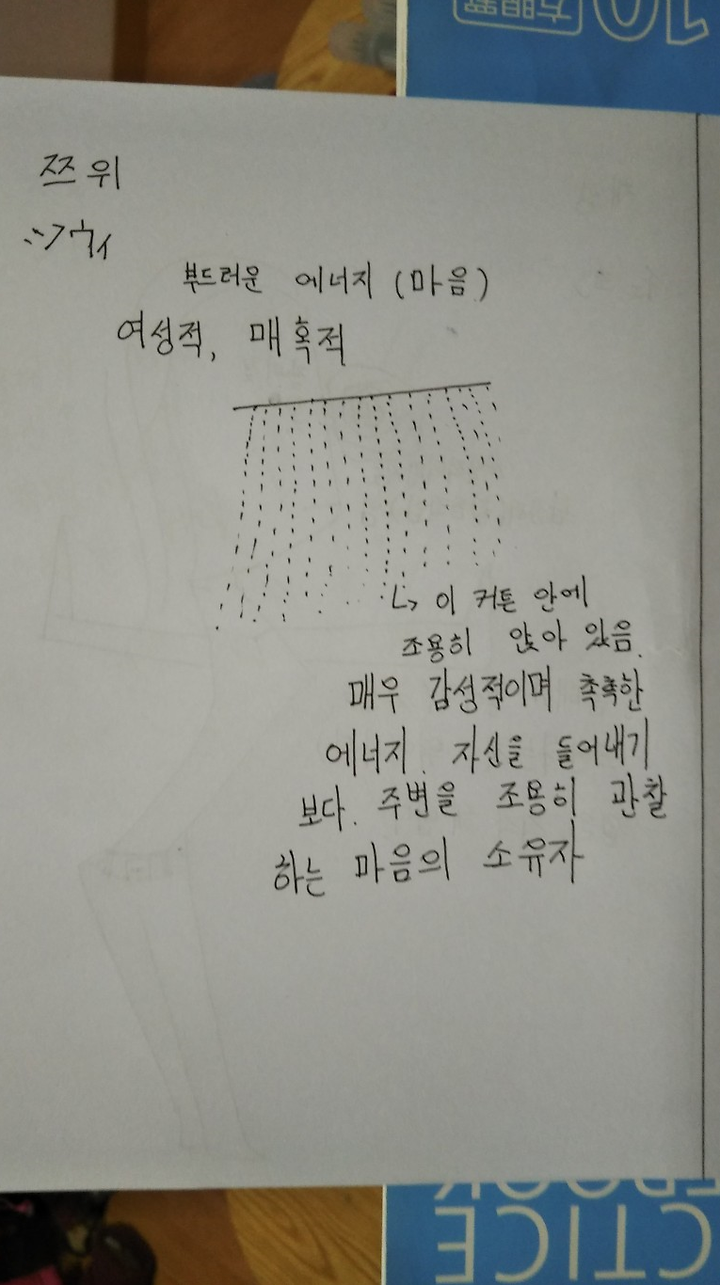 10 方眼罫
쯔위
ツウィ
부드러운 에너지 (마음)
여성적, 매혹적
↳ 이 커튼 안에
조용히 앉아 있음.
매우 감성적이며 촉촉한
에너지. 자신을 들어내기
보다. 주변을 조용히 관찰
하는 마음의 소유자
CTICE
EBOOK